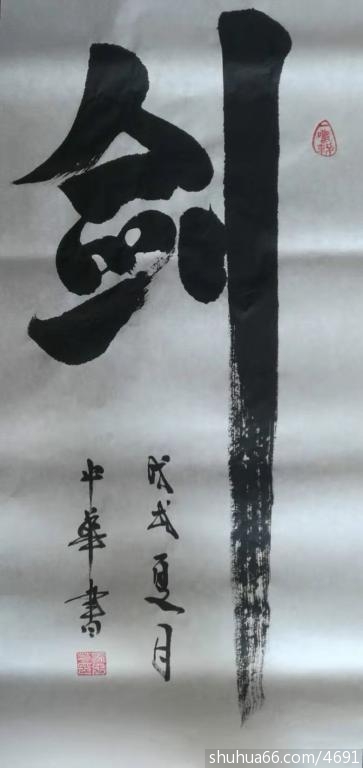 剑
戊戌夏月
中华書
shuhua66.com/4691